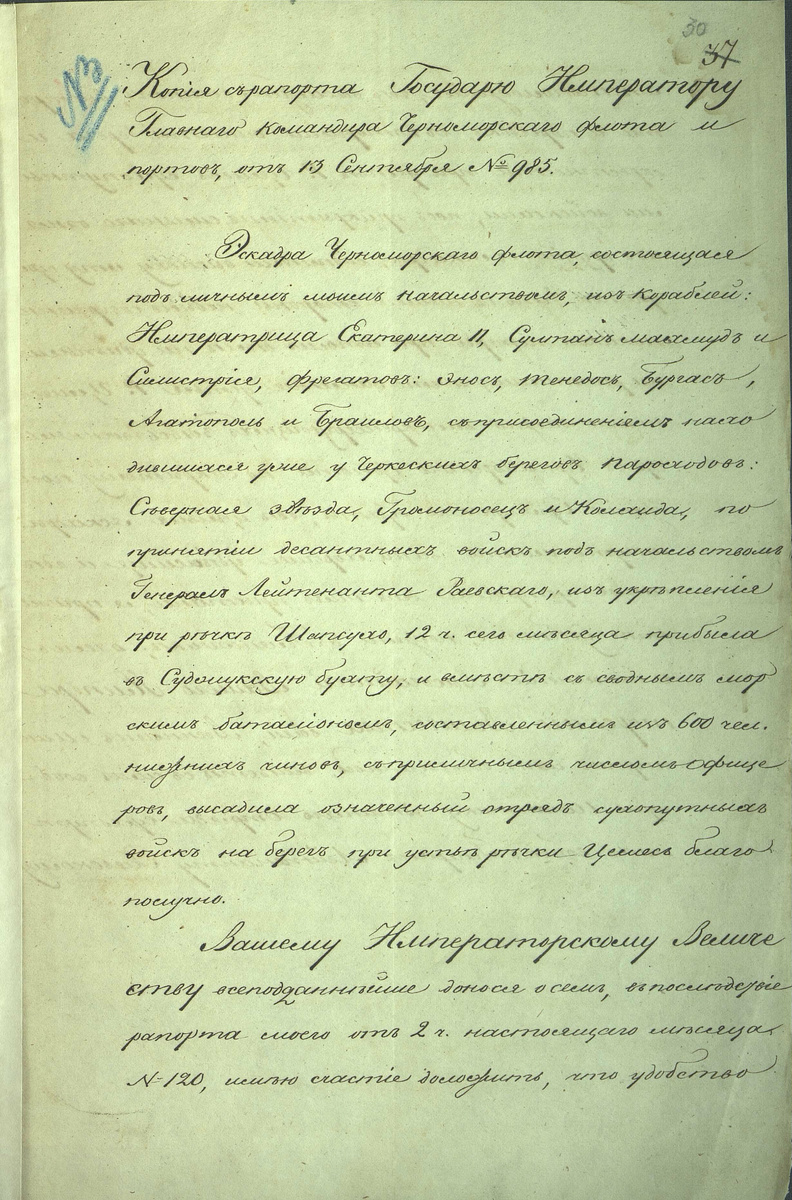 30
37
№
Копія съ рапорта Государю Императору
Главнаго Командира Черноморскаго флота и
портовъ, отъ 13 Сентября № 985.
Эскадра Черноморскаго флота, состоящая
подъ личнымъ моимъ начальствомъ, изъ кораблей:
Императрица Екатерина II, Султанъ Махмудъ и
Силистрія, фрегатовъ: Эносъ, Тенедосъ, Бургасъ,
Агатополь и Браиловъ, съ присоединеніемъ нахо
дившихся уже у Черкескихъ береговъ пароходовъ:
Сѣверная звѣзда, Громоносецъ и Колхида, по
принятіи десантныхъ войскъ подъ начальствомъ
Генералъ Лейтенанта Раевскаго, изъ укрѣпленія
при рѣчкѣ Шапсухо, 12 ч. сего мѣсяца прибыла
въ Суджукскую бухту, и вмѣстѣ съ своднымъ мор
скимъ баталіономъ, составленнымъ изъ 600 чел.
нижнихъ чиновъ, съ приличнымъ числомъ офице
ровъ, высадила означенный отрядъ сухопутныхъ
войскъ на берегъ при устьѣ рѣчки Цемесъ благо
получно.
Вашему Императорскому Величе
ству всеподданнѣйше донося о семъ, въ послѣдствіе
рапорта моего отъ 2 ч. настоящаго мѣсяца
№ 120, имѣю счастіе доложить, что удобство